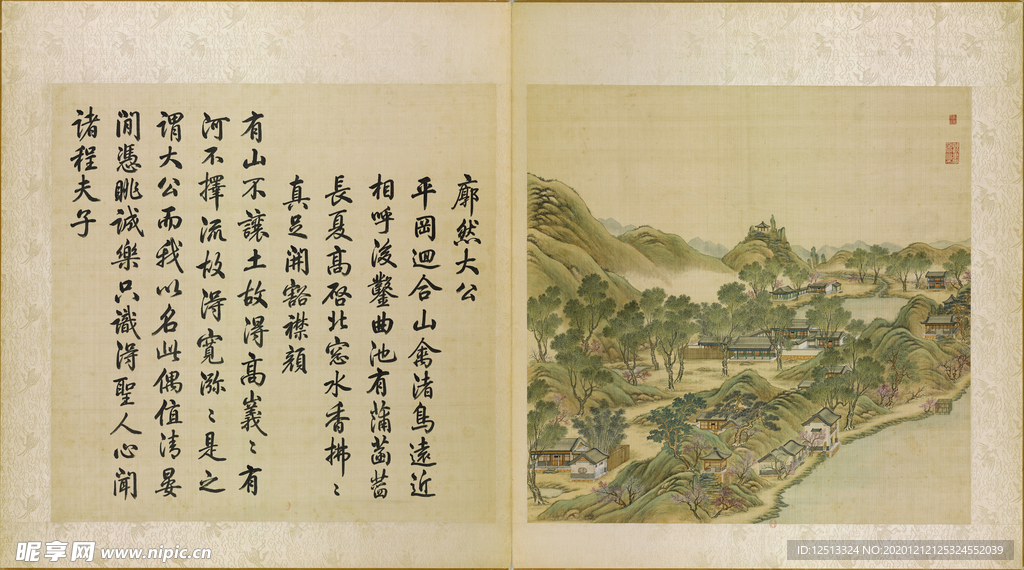 廓然大公
平岡迴合山禽渚鳥遠近
相呼後鑿曲池有蒲菡萏
長夏高啓北窓水香拂〻
真足開豁襟顔
有山不讓土故得高㠖〻有
河不擇流故淂寬瀰〻是之
謂大公而我以名此偶值清晏
閒憑眺誠樂只識淂聖人心聞
諸程夫子
昵享网 www.nipic.cn
ID:12513324 NO:20201212125324552039